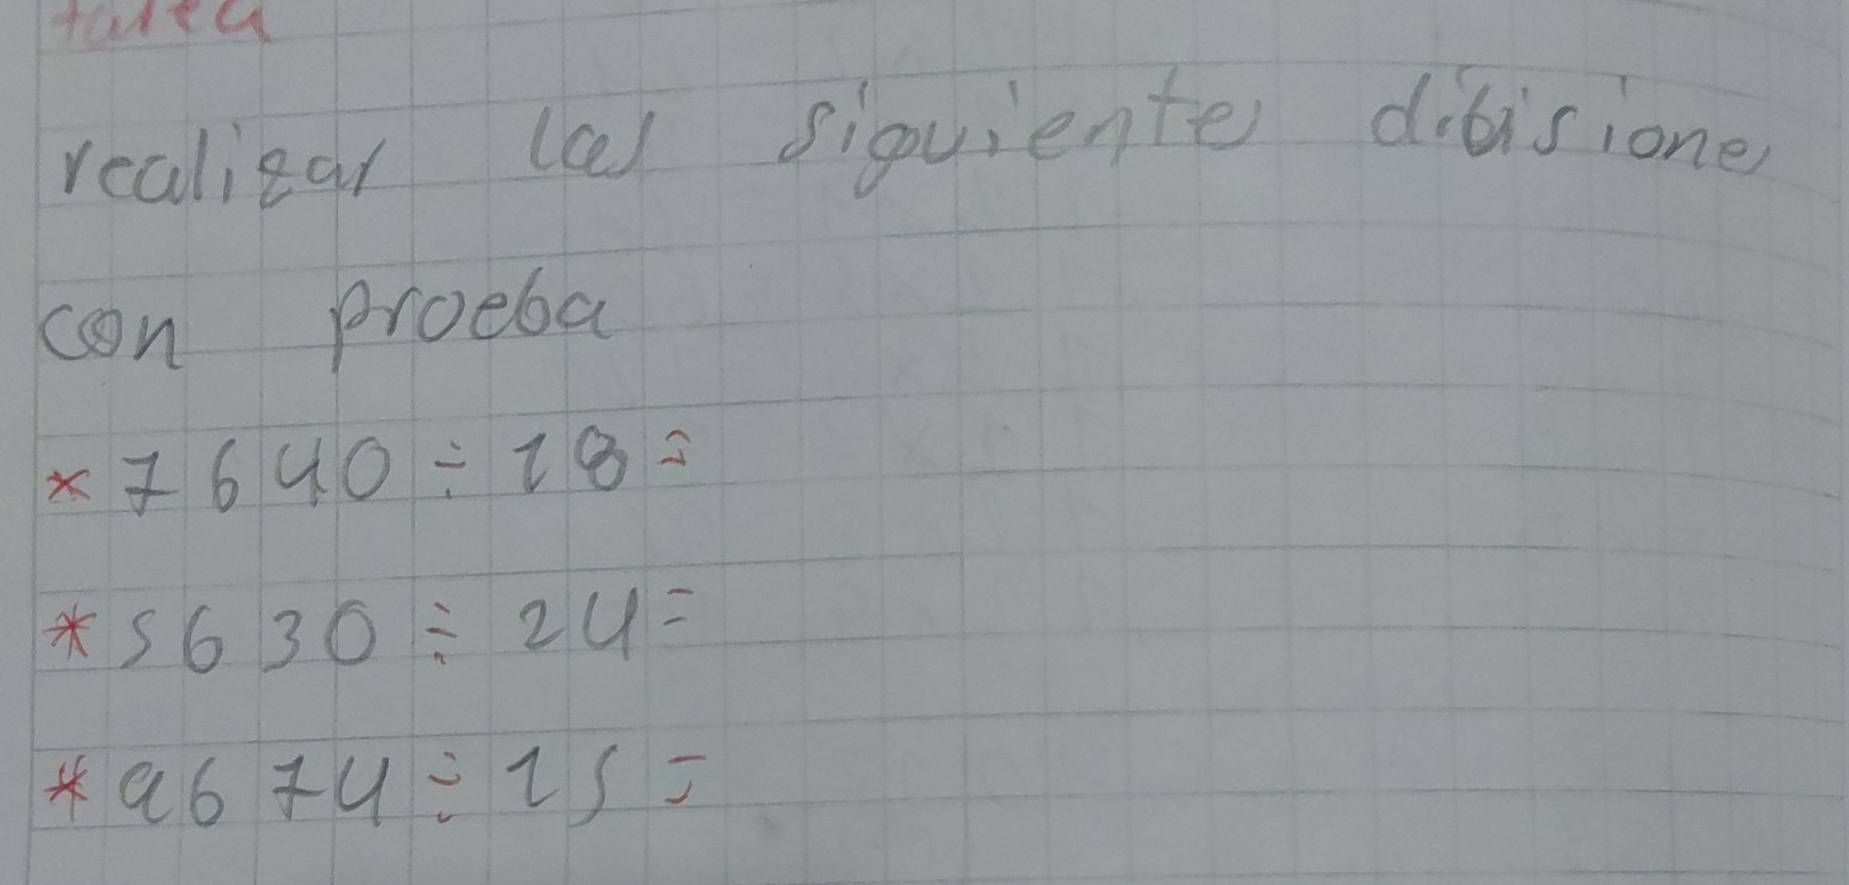 tarea
realizar las siguientes dibisiones
con proeba
* 7640 ÷ 18 =
* 5630 ÷ 24 =
* 9674 ÷ 15 =